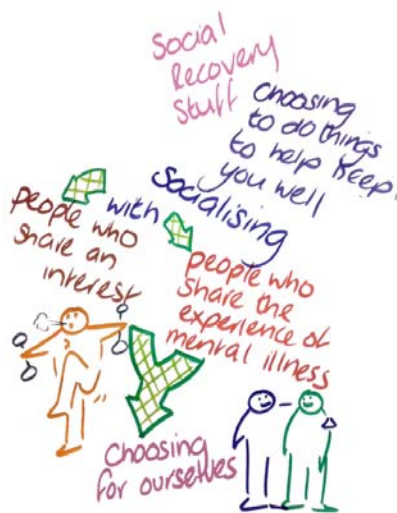 Social
Recovery
Stuff
choosing
to do things
to help keep
you well
socialising
with
people who
share an
interest
people who
share the
experience of
mental illness
Choosing
for ourselves